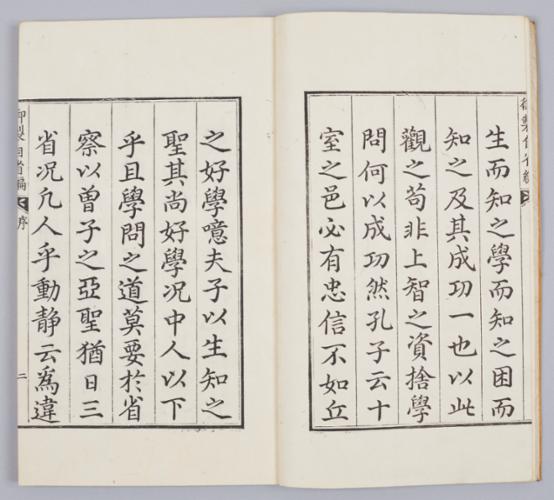 生而知之學而知之困而
知之及其成功一也以此
觀之茍非上智之資捨學
問何以成功然孔子云十
室之邑必有忠信不如丘
之好學噫夫子以生知之
聖其尚好學况中人以下
乎且學問之道莫要於省
察以曾子之亞聖猶日三
省况凡人乎動静云爲違
御製自省編
序
二